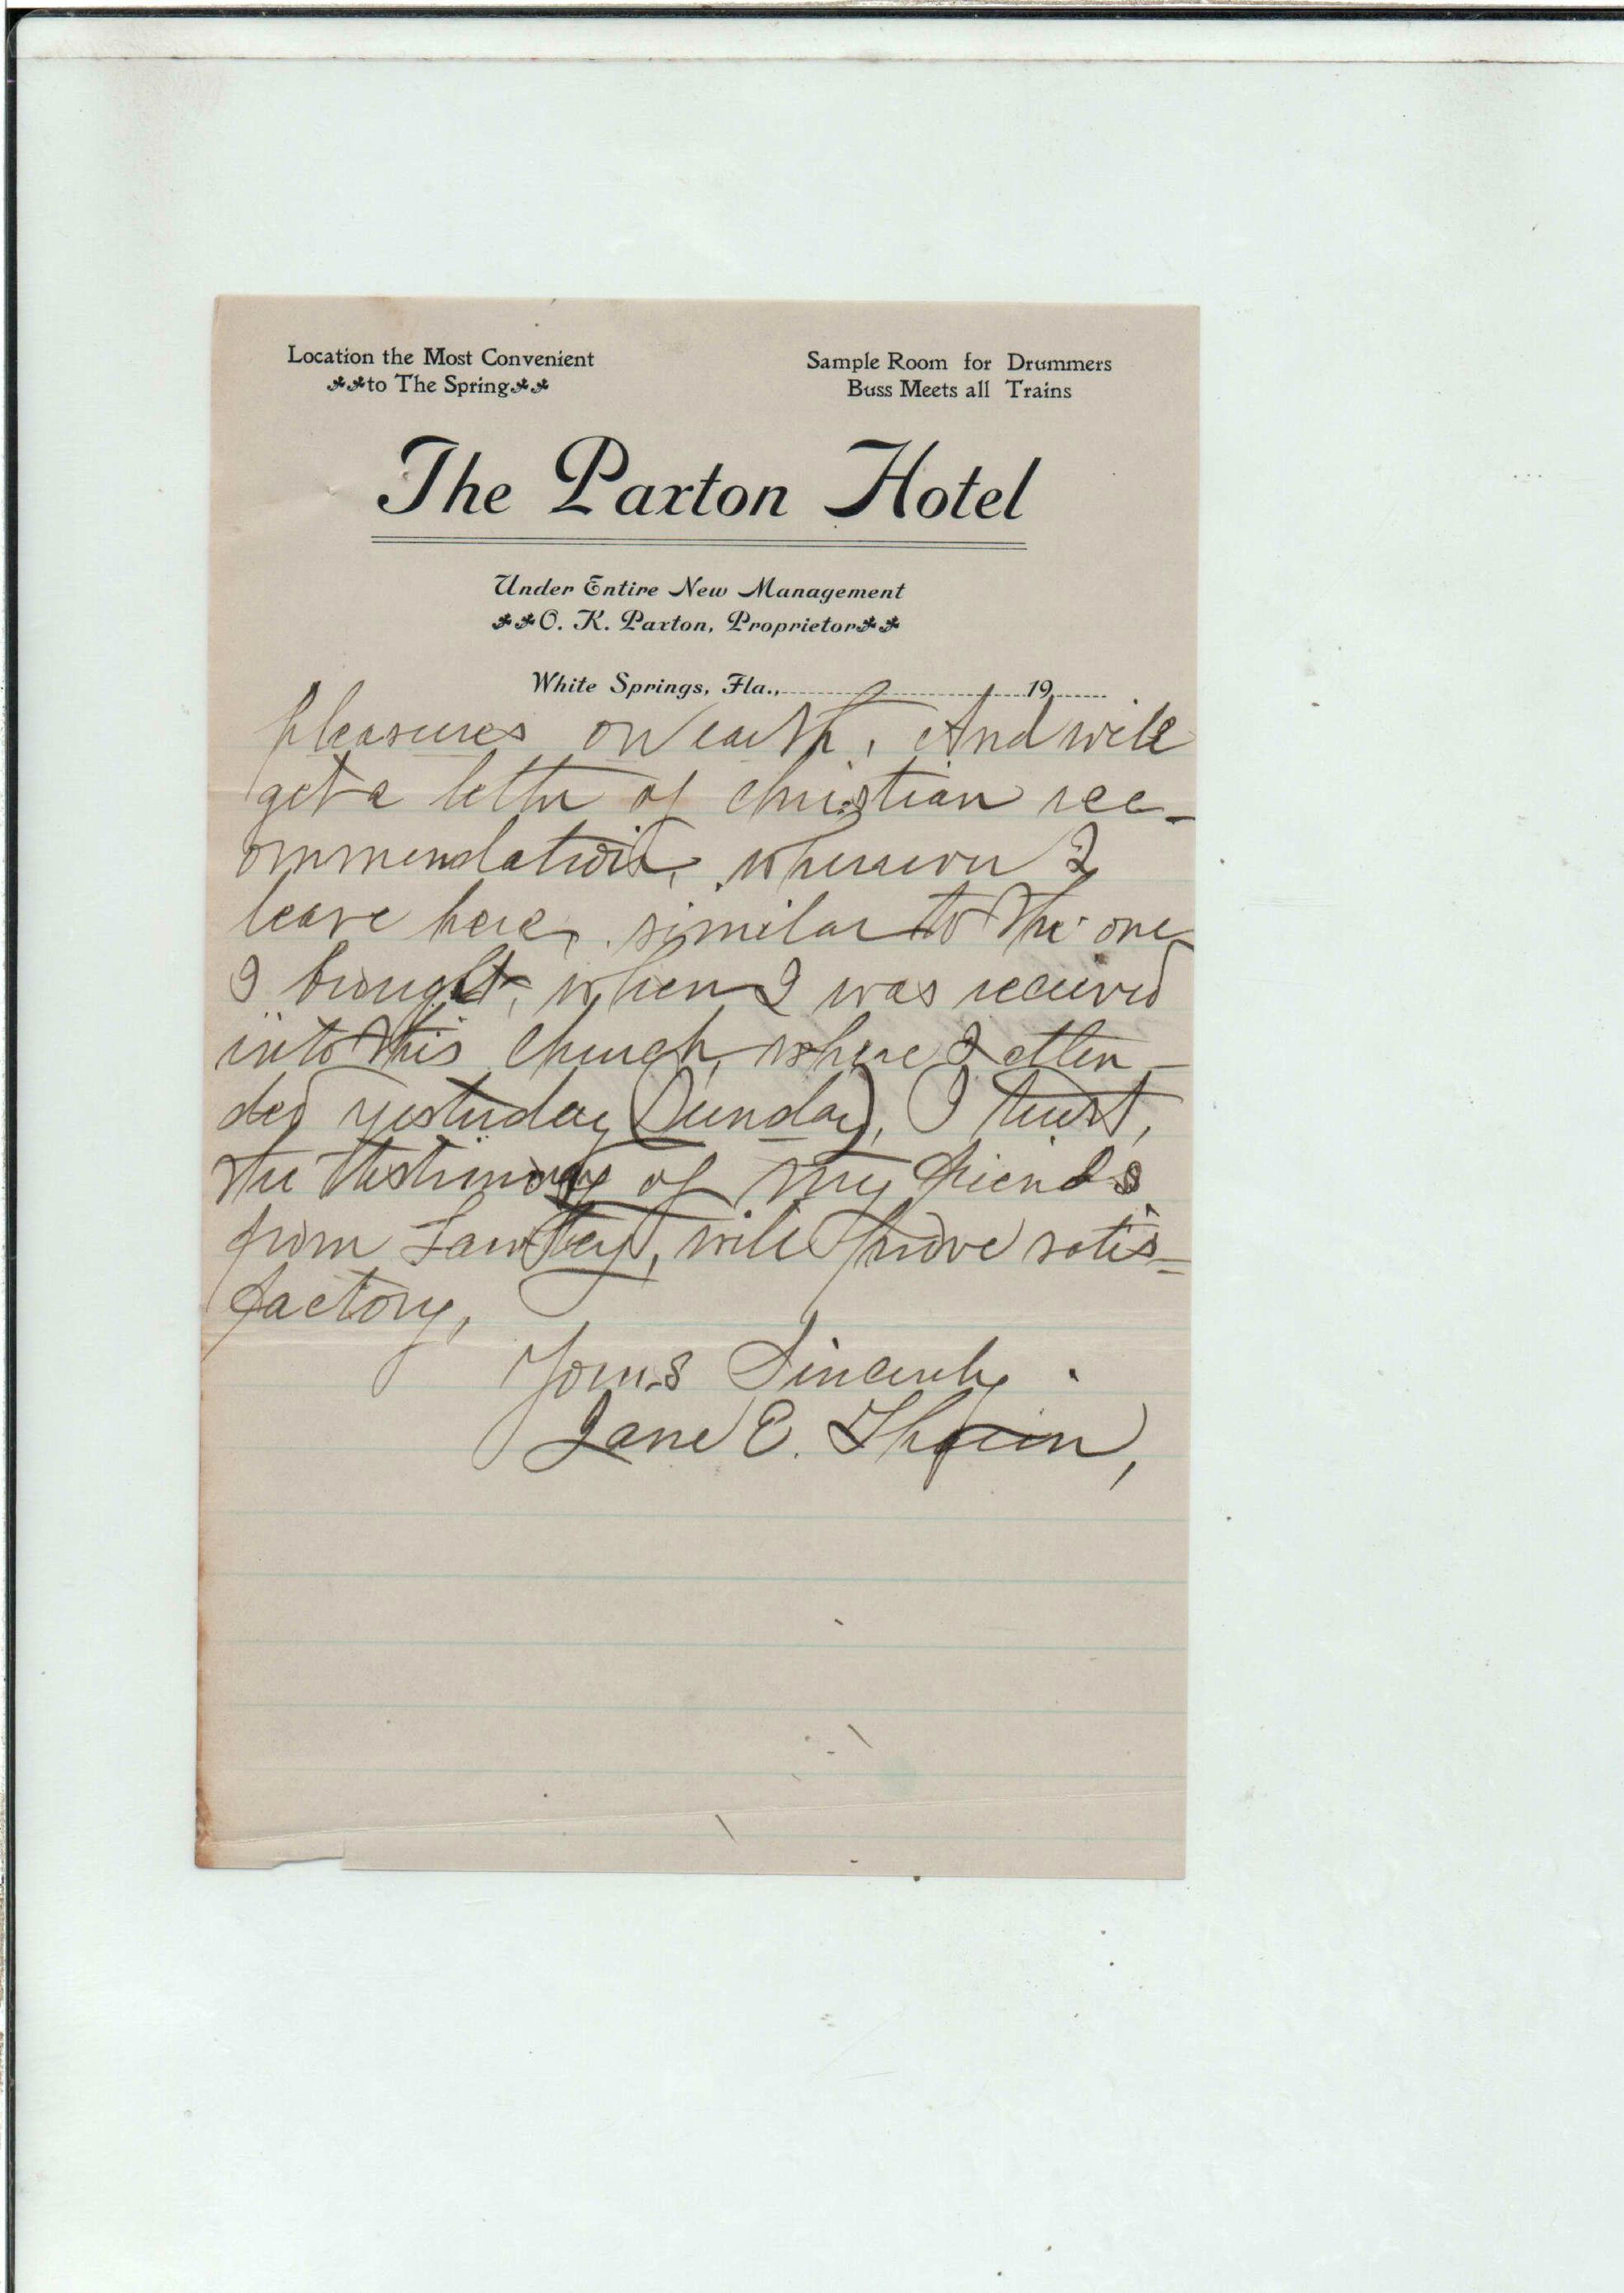 Location the Most Convenient
to The Spring
Sample Room for Drummers
Buss Meets all Trains
The Paxton Hotel
Under Entire New Management
O. K. Paxton, Proprietor
White Springs, Fla., 19
pleasures on earth, And will
get a letter of christian rec-
ommendation, whenever I
leave here, similar to the one
I brought, when I was received
into this Church, where I atten-
ded yesterday (Sunday), I trust,
the testimony of my friends
from Lawtey, will prove satis=
factory,
Yours Sincerely
Jane E. Thain,